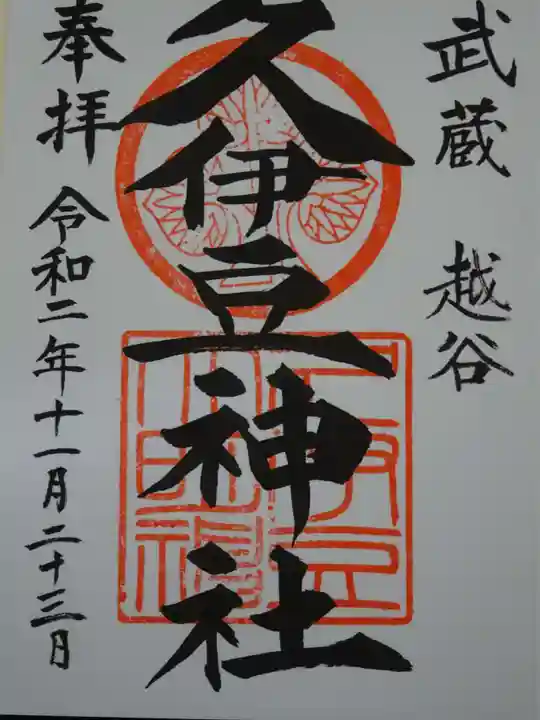 武蔵 越谷
久伊豆神社
奉拝 令和二年十一月二十三日